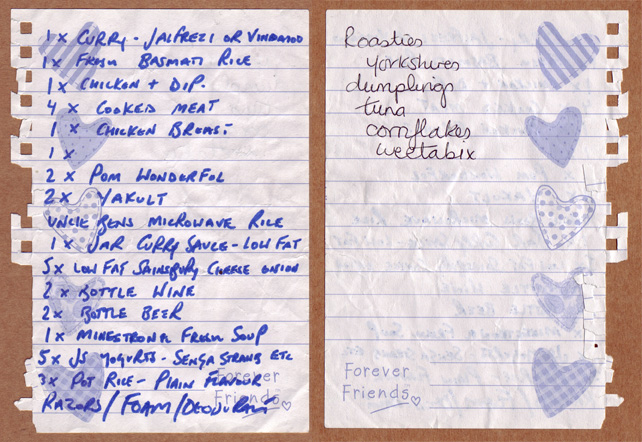 1 x CURRY - JALFREZI OR VINDALOO
1 x FRESH BASMATI RICE
1 x CHICKEN + DIP.
4 x COOKED MEAT
1 x CHICKEN BREAST
1 x
2 x POM WONDERFUL
2 x YAKULT
UNCLE BENS MICROWAVE RICE
1 x JAR CURRY SAUCE - LOW FAT
5 x LOW FAT SAINSBURY CHEESE ONION
2 x BOTTLE WINE
2 x BOTTLE BEER
1 x MINESTRONE FRESH SOUP
5 x JS YOGURTS - ETC
3 x POT RICE - PLAIN FLAVOUR
RAZORS / FOAM / DEODURANT
Forever
Friends
Roasties
Yorkshires
dumplings
tuna
cornflakes
weetabix
Forever
Friends